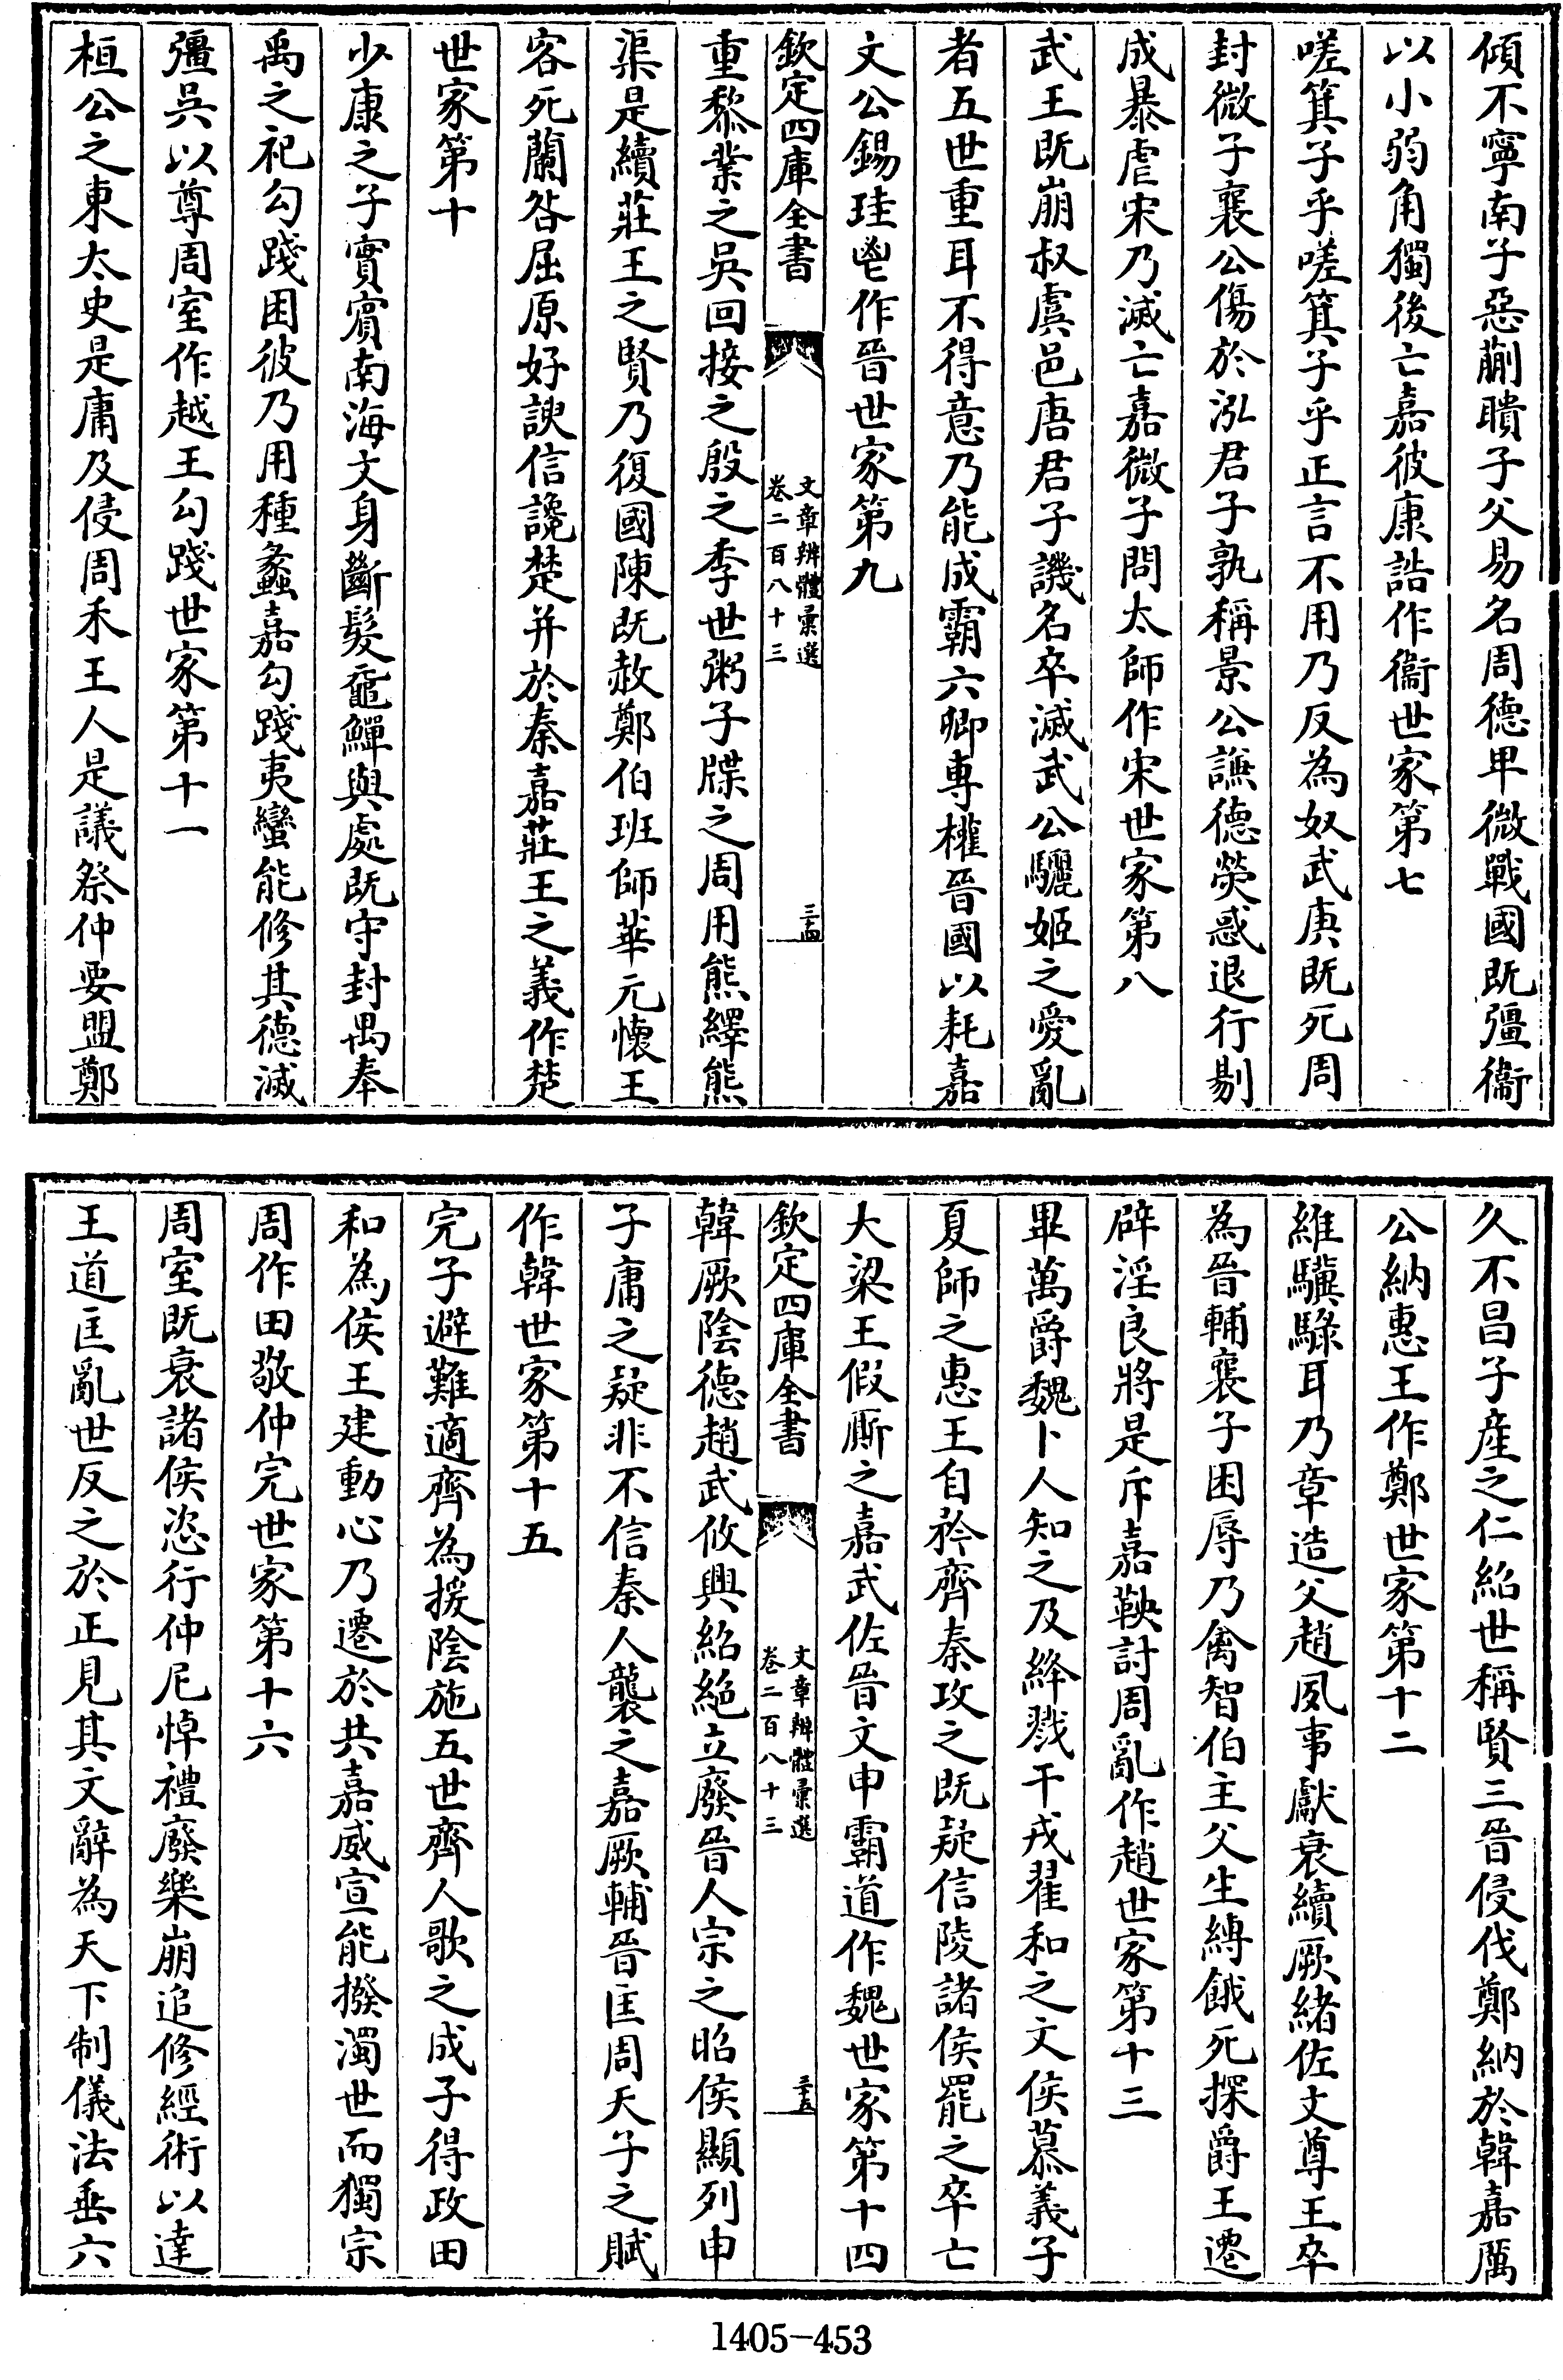 傾不寧南子惡蒯聵子父易名周德卑微戰國既彊衞
以小弱角獨後亡嘉彼康誥作衞世家第七
嗟箕子乎嗟箕子乎正言不用乃反為奴武庚既死周
封微子襄公傷於泓君子孰稱景公謙德熒惑退行剔
成暴虐宋乃滅亡嘉微子問太師作宋世家第八
武王既崩叔虞邑唐君子譏名卒滅武公驪姬之愛亂
者五世重耳不得意乃能成霸六卿專權晉國以耗嘉
文公錫珪鬯作晉世家第九
欽定四庫全書
文章辨體彙選
卷二百八十三
三四
重黎業之吳回接之殷之季世粥子牒之周用熊繹熊
渠是續莊王之賢乃復國陳既赦鄭伯班師華元懷王
客死蘭咎屈原好諛信讒楚并於秦嘉莊王之義作楚
世家第十
少康之子實賓南海文身斷髮黿鱓與處既守封禺奉
禹之祀勾踐困彼乃用種蠡嘉勾踐夷蠻能修其德滅
彊吳以尊周室作越王勾踐世家第十一
桓公之東太史是庸及侵周禾王人是議祭仲要盟鄭
久不昌子產之仁紹世稱賢三晉侵伐鄭納於韓嘉厲
公納惠王作鄭世家第十二
維驥騄耳乃章造父趙夙事獻衰續厥緒佐文尊王卒
為晉輔襄子困辱乃禽智伯主父生縛餓死探爵王遷
辟淫良將是斥嘉鞅討周亂作趙世家第十三
畢萬爵魏卜人知之及絳戮干戎翟和之文侯慕義子
夏師之惠王自矜齊秦攻之既疑信陵諸侯罷之卒亡
大梁王假廝之嘉武佐晉文申霸道作魏世家第十四
欽定四庫全書
文章辨體彙選
卷二百八十三
三五
韓厥陰德趙武攸興紹絕立廢晉人宗之昭侯顯列申
子庸之疑非不信秦人襲之嘉厥輔晉匡周天子之賦
作韓世家第十五
完子避難適齊為援陰施五世齊人歌之成子得政田
和為侯王建動心乃遷於共嘉威宣能撥濁世而獨宗
周作田敬仲完世家第十六
周室既衰諸侯恣行仲尼悼禮廢樂崩追修經術以達
王道匡亂世反之於正見其文辭為天下制儀法垂六
1405-453